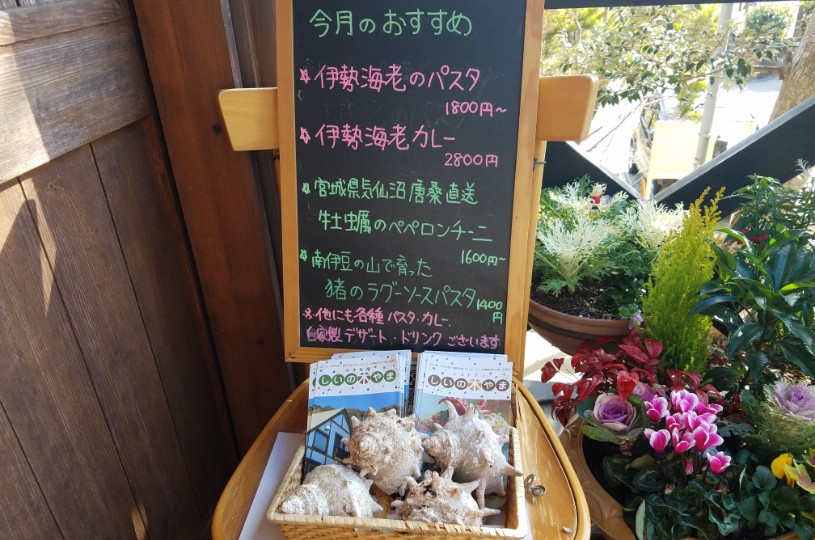 今月のおすすめ
☆伊勢海老のパスタ
1800円～
☆伊勢海老カレー
2800円
☆宮城県気仙沼唐桑直送
牡蠣のペペロンチーニ
1600円～
☆南伊豆の山で育った
猪のラグーソースパスタ 1400円
※他にも各種パスタ・カレー
自家製デザート・ドリンクございます
しいの木やま
しいの木やま